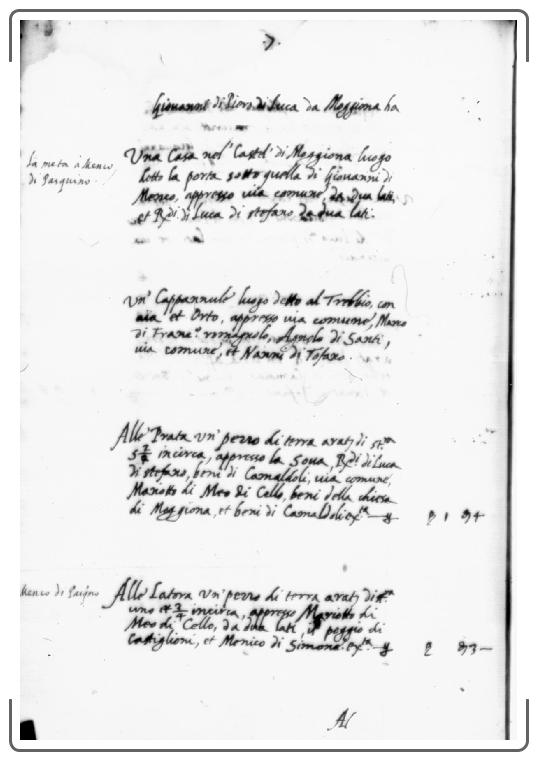 7.
Giovanni di Piero di Luca da Moggiona ha
La meta à Menco
di Pasquino.
Una Casa nel' Castel' di Moggiona luogo
detto la porta sotto quella di Giovanni di
Menco, appresso via comune, da dua lati,
et Rdi. di Luca di stefano da dua lati.
Un' Cappannule luogo detto al Trebbio, con
aia et Orto, appresso via comune, Marco
di Franco. romagnolo, Agnolo di Santi,
via comune, et Nanni di Tofano.
Alle Prata un' pezzo di terra arat. di st.ra
5 3/4 incirca, appresso la Sova, Rdi. di Luca
di stefano, beni di Camaldoli, via comune,
Mariotto di Meo di Cello, beni della chiesa
di Moggiona, et beni di Camaldoli
Menco di
Alle Latora un' pezzo di terra arat. di st.ra
uno et 3/4 incirca, appresso Mariotto di
Meo di Cello, da dua lati, il poggio di
Castiglioni, et Monico di Simone.
Al